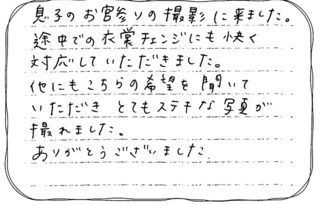 息子のお宮参りの撮影に来ました。
途中での衣裳チェンジにも快く
対応していただきました。
他にもこちらの希望を聞いて
いただき とてもステキな写真が
撮れました。
ありがとうございました